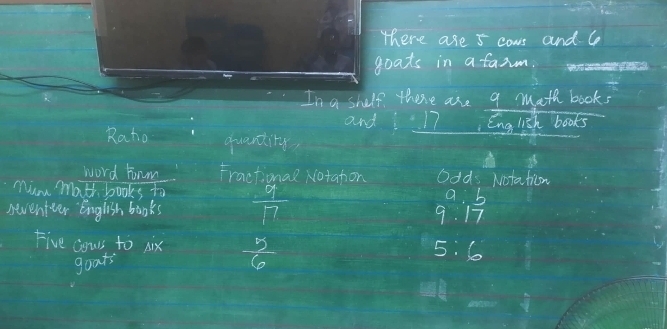 There are 5 cows and 6
goats in a farm.
In a shelf, there are 9 Math books
and 17 English books
Ratio quantity
word form Fractional Notation Odds Notation
Nine Math books to 9/17 a:b
seventeen English books 9:17
Five cows to six 5/6 5:6
goats